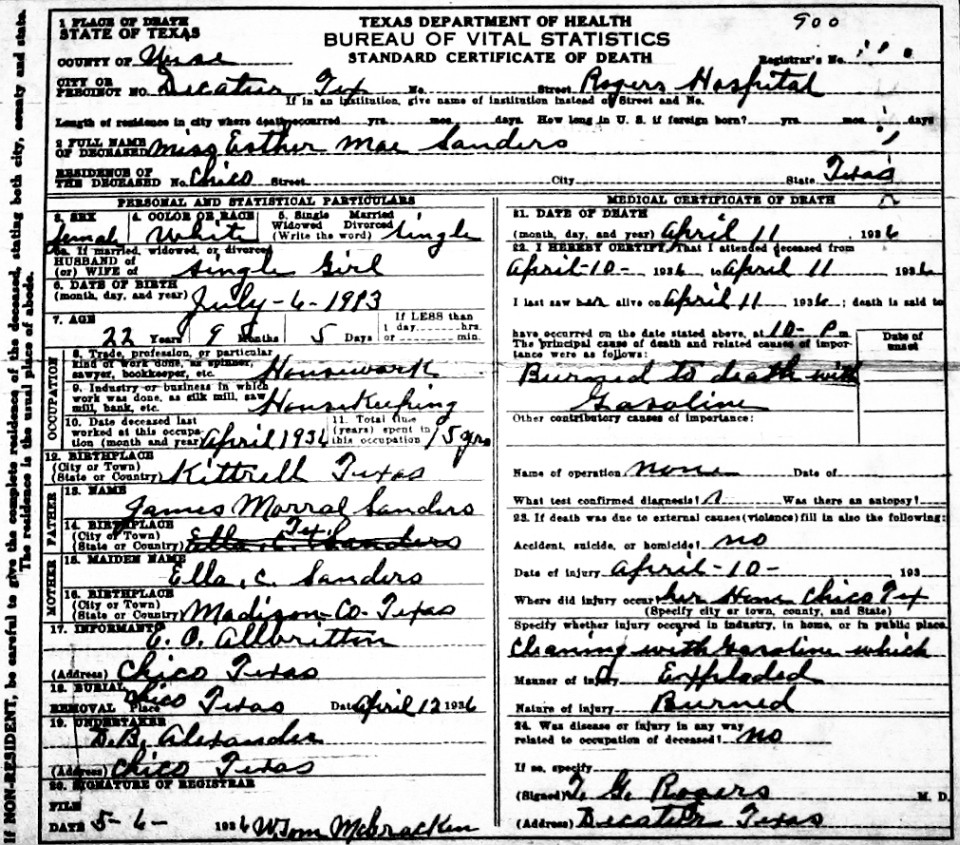 If NON-RESIDENT, be careful to give the complete residence of the deceased, stating both city, county and state.
The residence is the usual place of abode.
900
1 PLACE OF DEATH
STATE OF TEXAS
TEXAS DEPARTMENT OF HEALTH
BUREAU OF VITAL STATISTICS
STANDARD CERTIFICATE OF DEATH
COUNTY OF Wise Registrar's No.
CITY OR PRECINCT NO. Decatur Tex No. Street Rogers Hospital
If in an institution, give name of institution instead of Street and No.
Length of residence in city where death occurred yrs. mos. days. How long in U. S. if foreign born? yrs. mos. days
2 FULL NAME OF DECEASED Miss Esther Mae Sanders
RESIDENCE OF THE DECEASED No. Chico Street City State Texas
PERSONAL AND STATISTICAL PARTICULARS
3. SEX female 4. COLOR OR RACE White 5. Single Married Widowed Divorced (Write the word) Single
5a. If married, widowed, or divorced
HUSBAND OF (or) WIFE of Single Girl
6. DATE OF BIRTH (month, day, and year) July-6-1913
7. AGE 22 Years 9 5 Days If LESS than 1 day hrs. or min.
OCCUPATION
8. Trade, profession, or particular kind of work done, as spinner, sawyer, bookkeeper, etc. Housework
9. Industry or business in which work was done, as silk mill, saw mill, bank, etc. HouseKeeping
10. Date deceased last worked at this occupation (month and year) April 1936 11. Total time (years) spent in this occupation 15 yrs
12. BIRTHPLACE (City or Town) (State or Country) Kittrell Texas
FATHER
13. NAME James Morral Sanders
14. BIRTHPLACE (City or Town) (State or Country) Tex Ella, C. Sanders
MOTHER
15. MAIDEN NAME Ella, C. Sanders
16. BIRTHPLACE (City or Town) (State or Country) Madison-Co-Texas
17. INFORMANT E. O. Allbritton
(Address) Chico Texas
18. BURIAL REMOVAL Place Chico Texas Date April 12 1936
19. UNDERTAKER D.B. Alexander
(Address) Chico Texas
20. SIGNATURE OF REGISTRAR
FILE DATE 5-6- 1936 W Tom McCracken
MEDICAL CERTIFICATE OF DEATH
21. DATE OF DEATH
(month, day, and year) April 11, 1936
22. I HEREBY CERTIFY, That I attended deceased from
April-10- 1936 to April 11 1936
I last saw her alive on April 11 1936; death is said to
have occurred on the date stated above, at 10- P m.
The principal cause of death and related causes of importance were as follows: Date of onset
Burned to death with
Gasoline
Other contributory causes of importance:
Name of operation none Date of
What test confirmed diagnosis? Was there an autopsy?
23. If death was due to external causes (violence) fill in also the following:
Accident, suicide, or homicide? no
Date of injury April-10- 193
Where did injury occur? her Home Chico Tex
(Specify city or town, county, and State)
Specify whether injury occured in industry, in home, or in public place.
Cleaning with Gasoline which
Manner of injury Exploded
Nature of injury Burned
24. Was disease or injury in any way related to occupation of deceased? no
If so, specify
(Signed) T. G. Rogers M. D.
(Address) Decatur Texas